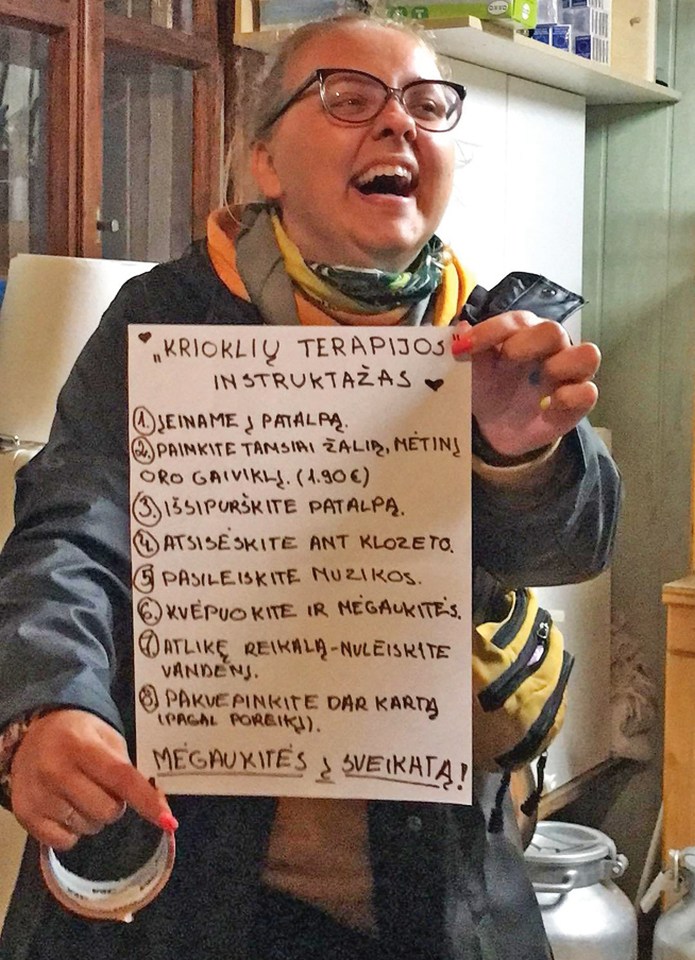 ♥ „KRIOKLIŲ TERAPIJOS"
INSTRUKTAŽAS ♥
1. ĮEINAME Į PATALPĄ.
2. PAIMKITE TAMSIAI ŽALIĄ, MĖTINĮ
ORO GAIVIKLĮ. (1.90€)
3. IŠSIPURŠKITE PATALPĄ.
4. ATSISĖSKITE ANT KLOZETO.
5 PASILEISKITE MUZIKOS.
6. KVĖPUOKITE IR MĖGAUKITĖS.
7. ATLIKĘ REIKALĄ-NULEISKITE
VANDENĮ.
8. PAKVEPINKITE DAR KARTĄ
(PAGAL POREIKĮ).
MĖGAUKITĖS Į SVEIKATĄ!